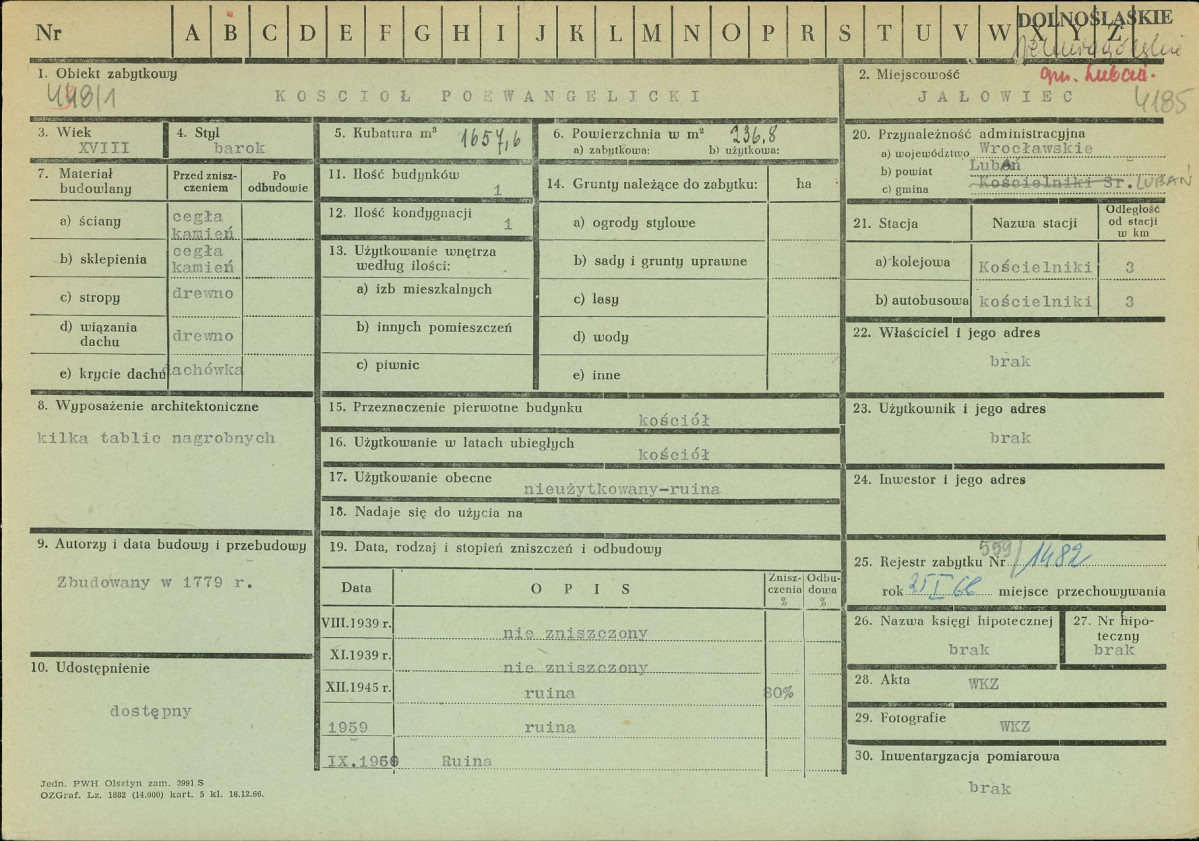 Nr A B C D E F G H I J K L M N O P R S T U V W X Y Z
DOLNOŚLĄSKIE
gm. Lubań.
1. Obiekt zabytkowy
KOSCIOŁ POEWANGELICKI
2. Miejscowość
JAŁOWIEC
4185
3. Wiek
XVIII
4. Styl
barok
5. Kubatura m³
1657,6
6. Powierzchnia w m²
236,8
a) zabytkowa: b) użytkowa:
7. Materiał budowlany
Przed zniszczeniem
Po odbudowie
a) ściany
cegła
kamień
b) sklepienia
cegła
kamień
c) stropy
drewno
d) wiązania dachu
drewno
e) krycie dachu
dachówka
8. Wyposażenie architektoniczne
kilka tablic nagrobnych
9. Autorzy i data budowy i przebudowy
Zbudowany w 1779 r.
10. Udostępnienie
dostępny
Jedn. PWH Olsztyn zam. 3991 S
OZGraf. Lz. 1882 (14.000) kart. 5 kl. 16.12.66.
11. Ilość budynków
1
12. Ilość kondygnacji
1
13. Użytkowanie wnętrza
według ilości:
a) izb mieszkalnych
b) innych pomieszczeń
c) piwnic
14. Grunty należące do zabytku: ha
a) ogrody stylowe
b) sady i grunty uprawne
c) lasy
d) wody
e) inne
15. Przeznaczenie pierwotne budynku
kościół
16. Użytkowanie w latach ubiegłych
kościół
17. Użytkowanie obecne
nieużytkowany-ruina
18. Nadaje się do użycia na
19. Data, rodzaj i stopień zniszczeń i odbudowy
Data OPIS Zniszczenia % Odbudowa %
VIII.1939 r. nie zniszczony
XI.1939 r. nie zniszczony
XII.1945 r. ruina 80%
1959 ruina
IX.1966 Ruina
20. Przynależność administracyjna
a) województwo Wrocławskie
b) powiat Lubań
c) gmina Kościelniki Śr. LUBAŃ
21. Stacja Nazwa stacji Odległość od stacji w km
a) kolejowa Kościelniki 3
b) autobusowa kościelniki 3
22. Właściciel i jego adres
brak
23. Użytkownik i jego adres
brak
24. Inwestor i jego adres
25. Rejestr zabytku Nr 559/1482
rok 25 I 66 miejsce przechowywania
26. Nazwa księgi hipotecznej
brak
27. Nr hipoteczny
brak
28. Akta
WKZ
29. Fotografie
WKZ
30. Inwentaryzacja pomiarowa
brak